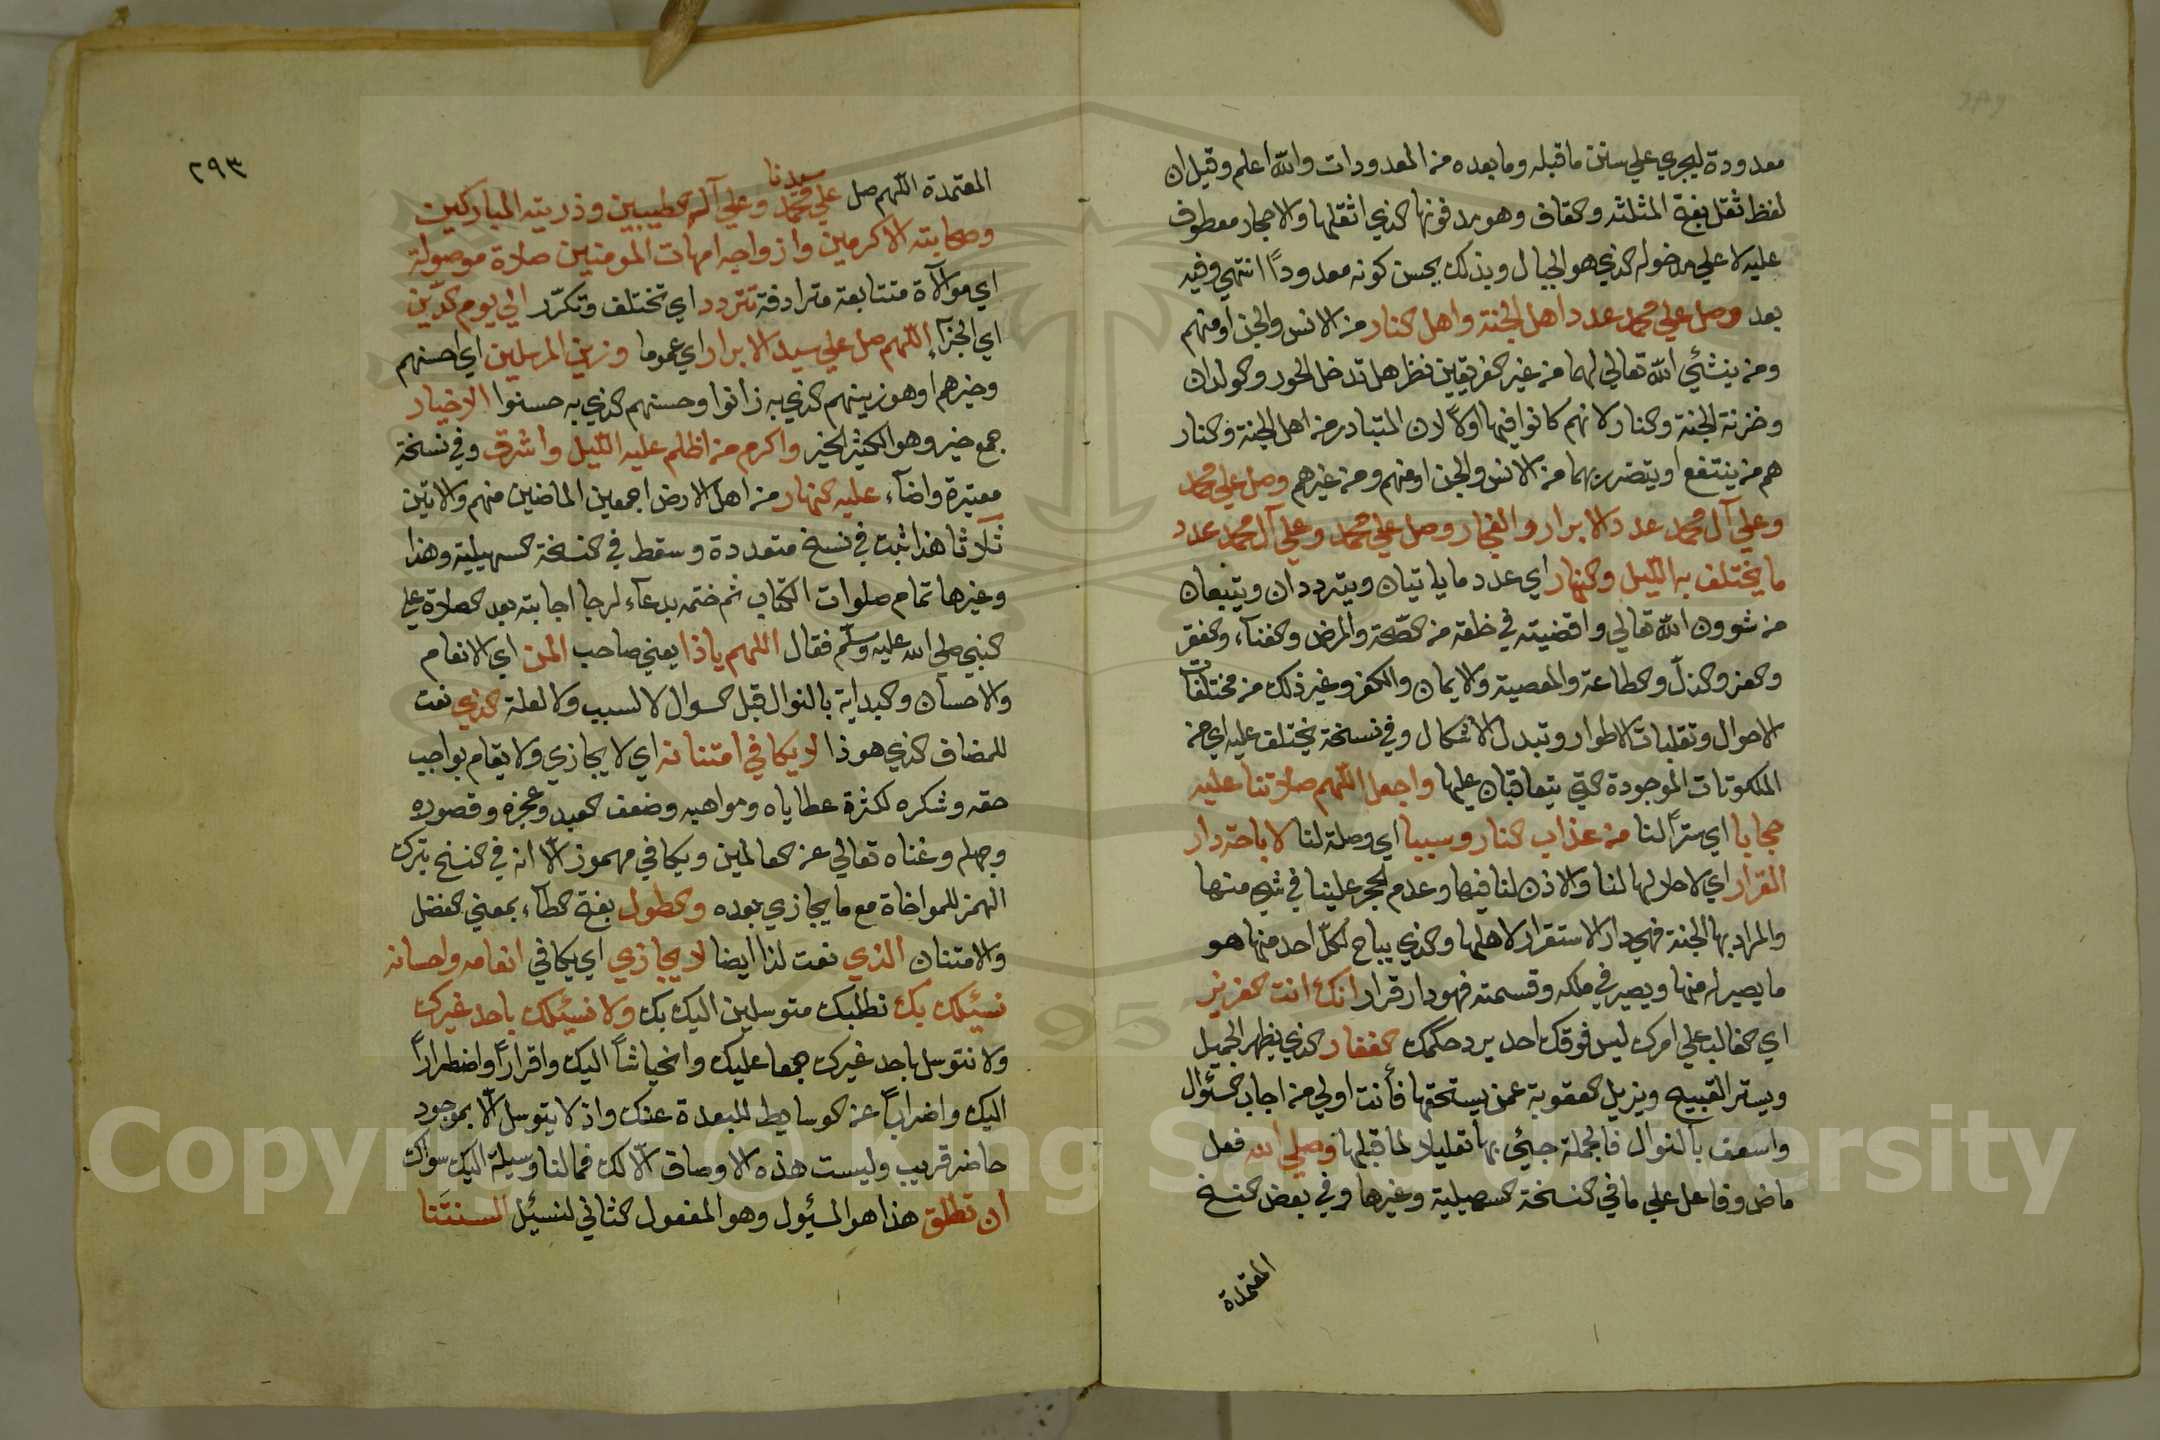 معدودة ليجري علي سنن ما قبله وما بعده من المعدودات والله اعلم وقيل ان
لفظ ثقل بفتح المثلثه والقاف وهو مدفونها الذي اثقلها والاحجار معطوف
عليه لا علي مدخوله الذي هو الجبال وبذلك يحسن كونه معدوداً انتهي وفيه
بعد وصل علي محمد عدد اهل الجنة واهل النار من الانس والجن او منهم
ومن ينشئ الله تعالي لهما من غير الفريقين نظر هل تدخل الحور والولدان
وخزنة الجنة والنار لانهم كانوا فيها اولا لان المتبادر من اهل الجنة والنار
هم من ينتفع او يتضرر بهما من الانس والجن او منهم ومن غيرهم وصل علي محمد
وعلي آل محمد عدد الابرار والفجار وصل علي محمد وعلي آل محمد عدد
ما يختلف به الليل والنهار اي عدد ما ياتيان ويترددان ويتبعان
من شوون الله تعالي واقضيته في خلقه من الصحة والمرض والغناء والفقر
والعز والذل والطاعة والمعصية والايمان والكفر وغير ذلك من مختلفات
الاحوال وتقلبات الاطوار وتبدل الاشكال وفي نسخة يختلف عليه اي من
الملكوتات الموجودة التي يتعاقبان عليها واجعل اللهم صلاتنا عليه
حجابا اي ستراً لنا من عذاب النار وسببا اي وصلة لنا لاباحة دار
القرار اي لاحلالها لنا والاذن لنا فيها وعدم الحجر علينا في شيء منها
والمراد بها الجنة فهي دار الاستقرار لاهلها والذي يباح لكل احد منها هو
ما يصير له منها ويصير في ملكه وقسمته فهو دار قرار انك انت العزيز
اي الغالب علي امرك ليس فوقك احد يرد حكمك الغفار الذي يظهر الجميل
ويستر القبيح ويزيل العقوبة عمن يستحقها فأنت اولي من اجاب السئوال
واسعف بالنوال فالجملة جيئ بها تعليلا لما قبلها وصلي الله فعل
ماض وفاعل علي ما في النسخة السهيلية وغيرها وفي بعض النسخ
المعتمدة
٢٩٣
سيدنا
المعتمدة اللهم صل علي محمد وعلي آله الطيبين وذريته المباركين
وصحابته الاكرمين وازواجه امهات المومنين صلاة موصولة
اي موالآة متتابعة مترادفة تتردد اي تختلف وتكرر الي يوم الدين
اي الجزآء اللهم صل علي سيد الابرار اي عموما وزين المرسلين اي احسنهم
وخيرهم او هو زينهم الذي به زانوا وحسنهم الذي به حسنوا الاخيار
جمع خير وهو الكثير الخير واكرم من اظلم عليه الليل واشرق وفي نسخة
معتبرة واضآء عليه النهار من اهل الارض اجمعين الماضين منهم والاتين
ثلاثا هذا ثبت في نسخ متعددة وسقط في النسخة السهيلية وهذا
وغيرها تمام صلوات الكتاب ثم ختمه بدعآء لرجا اجابته بعد الصلاة علي
النبي صلي الله عليه وسلم فقال اللهم ياذا يعني صاحب المن اي الانعام
والاحسان والبداية بالنوال قبل السوال لا لسبب ولا لعلة الذي نعت
للمضاف الذي هو ذا لا يكافي امتنانه اي لا يجازي ولا يقام بواجب
حقه وشكره لكثرة عطاياه ومواهبه وضعف العبد وعجزه وقصوره
وجهله وغناه تعالي عن العالمين ويكافي مهموز الا انه في النسخ بترك
الهمز للمواخاة مع ما يجازي بعده والطول بفتح الطآء بمعني الفضل
والامتنان الذي نعت لذا ايضا لا يجازي اي يكافي انعامه واحسانه
نسئيلك بك نطلبك متوسلين اليك بك ولا نسئيلك باحد غيرك
ولا نتوسل باحد غيرك جمعا عليك وانحياشاً اليك واقراراً واضطراراً
اليك واضراباً عن الوسايط المبعدة عنك واذ لا يتوسل الا بموجود
حاضر قريب وليست هذه الاوصاف الا لك فما لنا وسيلة اليك سواك
ان تطلق هذا هو المسئول وهو المفعول الثاني لنسئيل السنتنا
Copyright © King Saud University